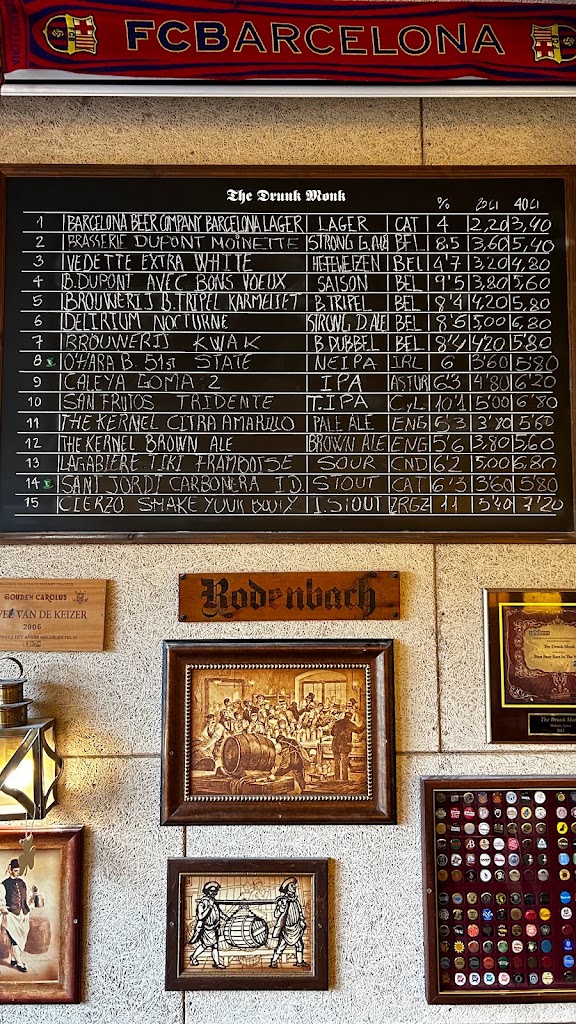 FCBARCELONA
The Drunk Monk
% 20Cl 40Cl
1 BARCELONA BEER COMPANY BARCELONA LAGER LAGER CAT 4 2,20 3,40
2 BRASSERIE DUPONT MOINETTE STRONG G.ALE BEL 8'5 3,60 5,40
3 VEDETTE EXTRA WHITE HEFEWEIZEN BEL 4'7 3,20 4,80
4 B.DUPONT AVEC BONS VOEUX SAISON BEL 9'5 3,80 5,60
5 BROUWERIJ B.TRIPEL KARMELIET B.TRIPEL BEL 8'4 4,20 5,80
6 DELIRIUM NOCTURNE STRONG D.ALE BEL 8'5 5,00 6,80
7 BROUWERIJ KWAK B.DUBBEL BEL 8'4 4,20 5,80
8 O'HARA B. 51st STATE NEIPA IRL 6 3'60 5'80
9 CALEYA GOMA 2 IPA ASTUR 6'3 4'80 6'20
10 SAN FRUTOS TRIDENTE T.IPA CyL 10'1 5'00 6'80
11 THE KERNEL CITRA AMARILLO PALE ALE ENG 5'3 3'80 5'60
12 THE KERNEL BROWN ALE BROWN ALE ENG 5'6 3.80 5.60
13 LAGABIÈRE TIKI FRAMBOISE SOUR CND 6'2 5,00 6,80
14 SANT JORDI CARBONERA I.D. STOUT CAT 6'3 3'60 5'80
15 CIERZO SHAKE YOUR BODY I.STOUT ZRGZ 11 5'40 7'20
GOUDEN CAROLUS
VAN DE KEIZER
2006
Rodenbach
The Drunk Monk